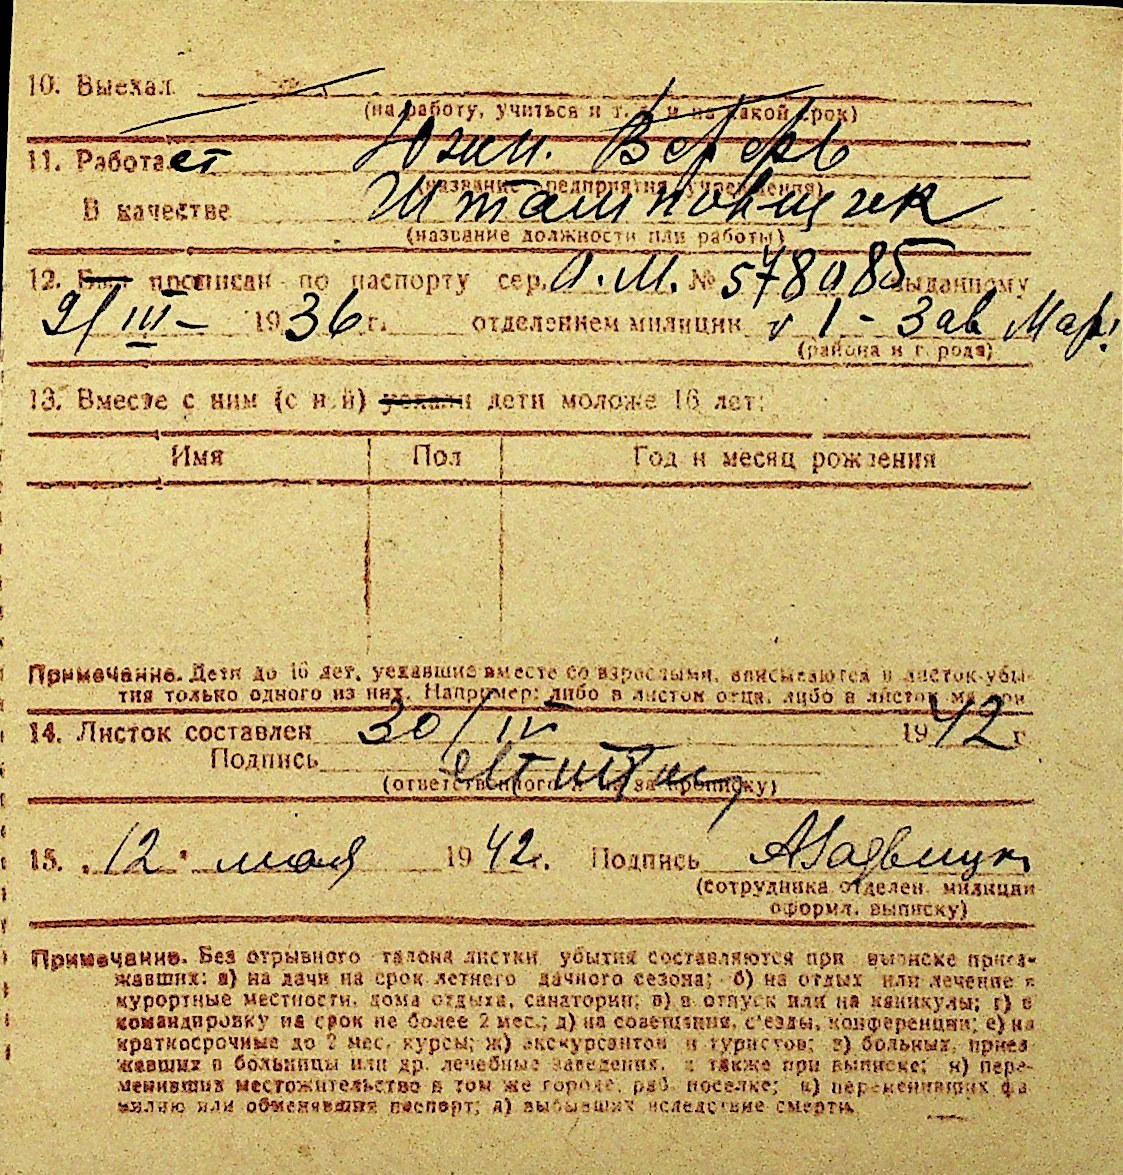 10. Выехал
(на работу, учиться и т. д. и на какой срок)
11. Работает Южн. Верфь
(название предприятия, учреждения)
В качестве Штамповщик
(название должности или работы)
12. Был прописан по паспорту сер. А. М. № 578085 выданному
9/III - 1936 г. отделением милиции 1 - Зав Мар.
(района и города)
13. Вместе с ним (с ней) уехали дети моложе 16 лет:
Имя Пол Год и месяц рождения
Примечание. Дети до 16 лет, уехавшие вместе со взрослыми, вписываются в листок-убы-
тия только одного из них. Например: либо в листок отца, либо в листок матери
14. Листок составлен 30/IV 1942 г
Подпись
(ответственного лица за прописку)
15. "12" мая 1942 г. Подпись
(сотрудника отделен. милиции
оформл. выписку)
Примечание. Без отрывного талона листки убытия составляются при выписке приез-
жавших: а) на дачи на срок летнего дачного сезона; б) на отдых или лечение в
курортные местности, дома отдыха, санатории; в) в отпуск или на каникулы; г) в
командировку на срок не более 2 мес.; д) на совещания, съезды, конференции; е) на
краткосрочные до 2 мес. курсы; ж) экскурсантов и туристов; з) больных, приез-
жавших в больницы или др. лечебные заведения, а также при выписке; и) пере-
менивших местожительство в том же городе, раб. поселке; к) переменивших фа-
милию или обменявших паспорт; л) выбывших вследствие смерти.